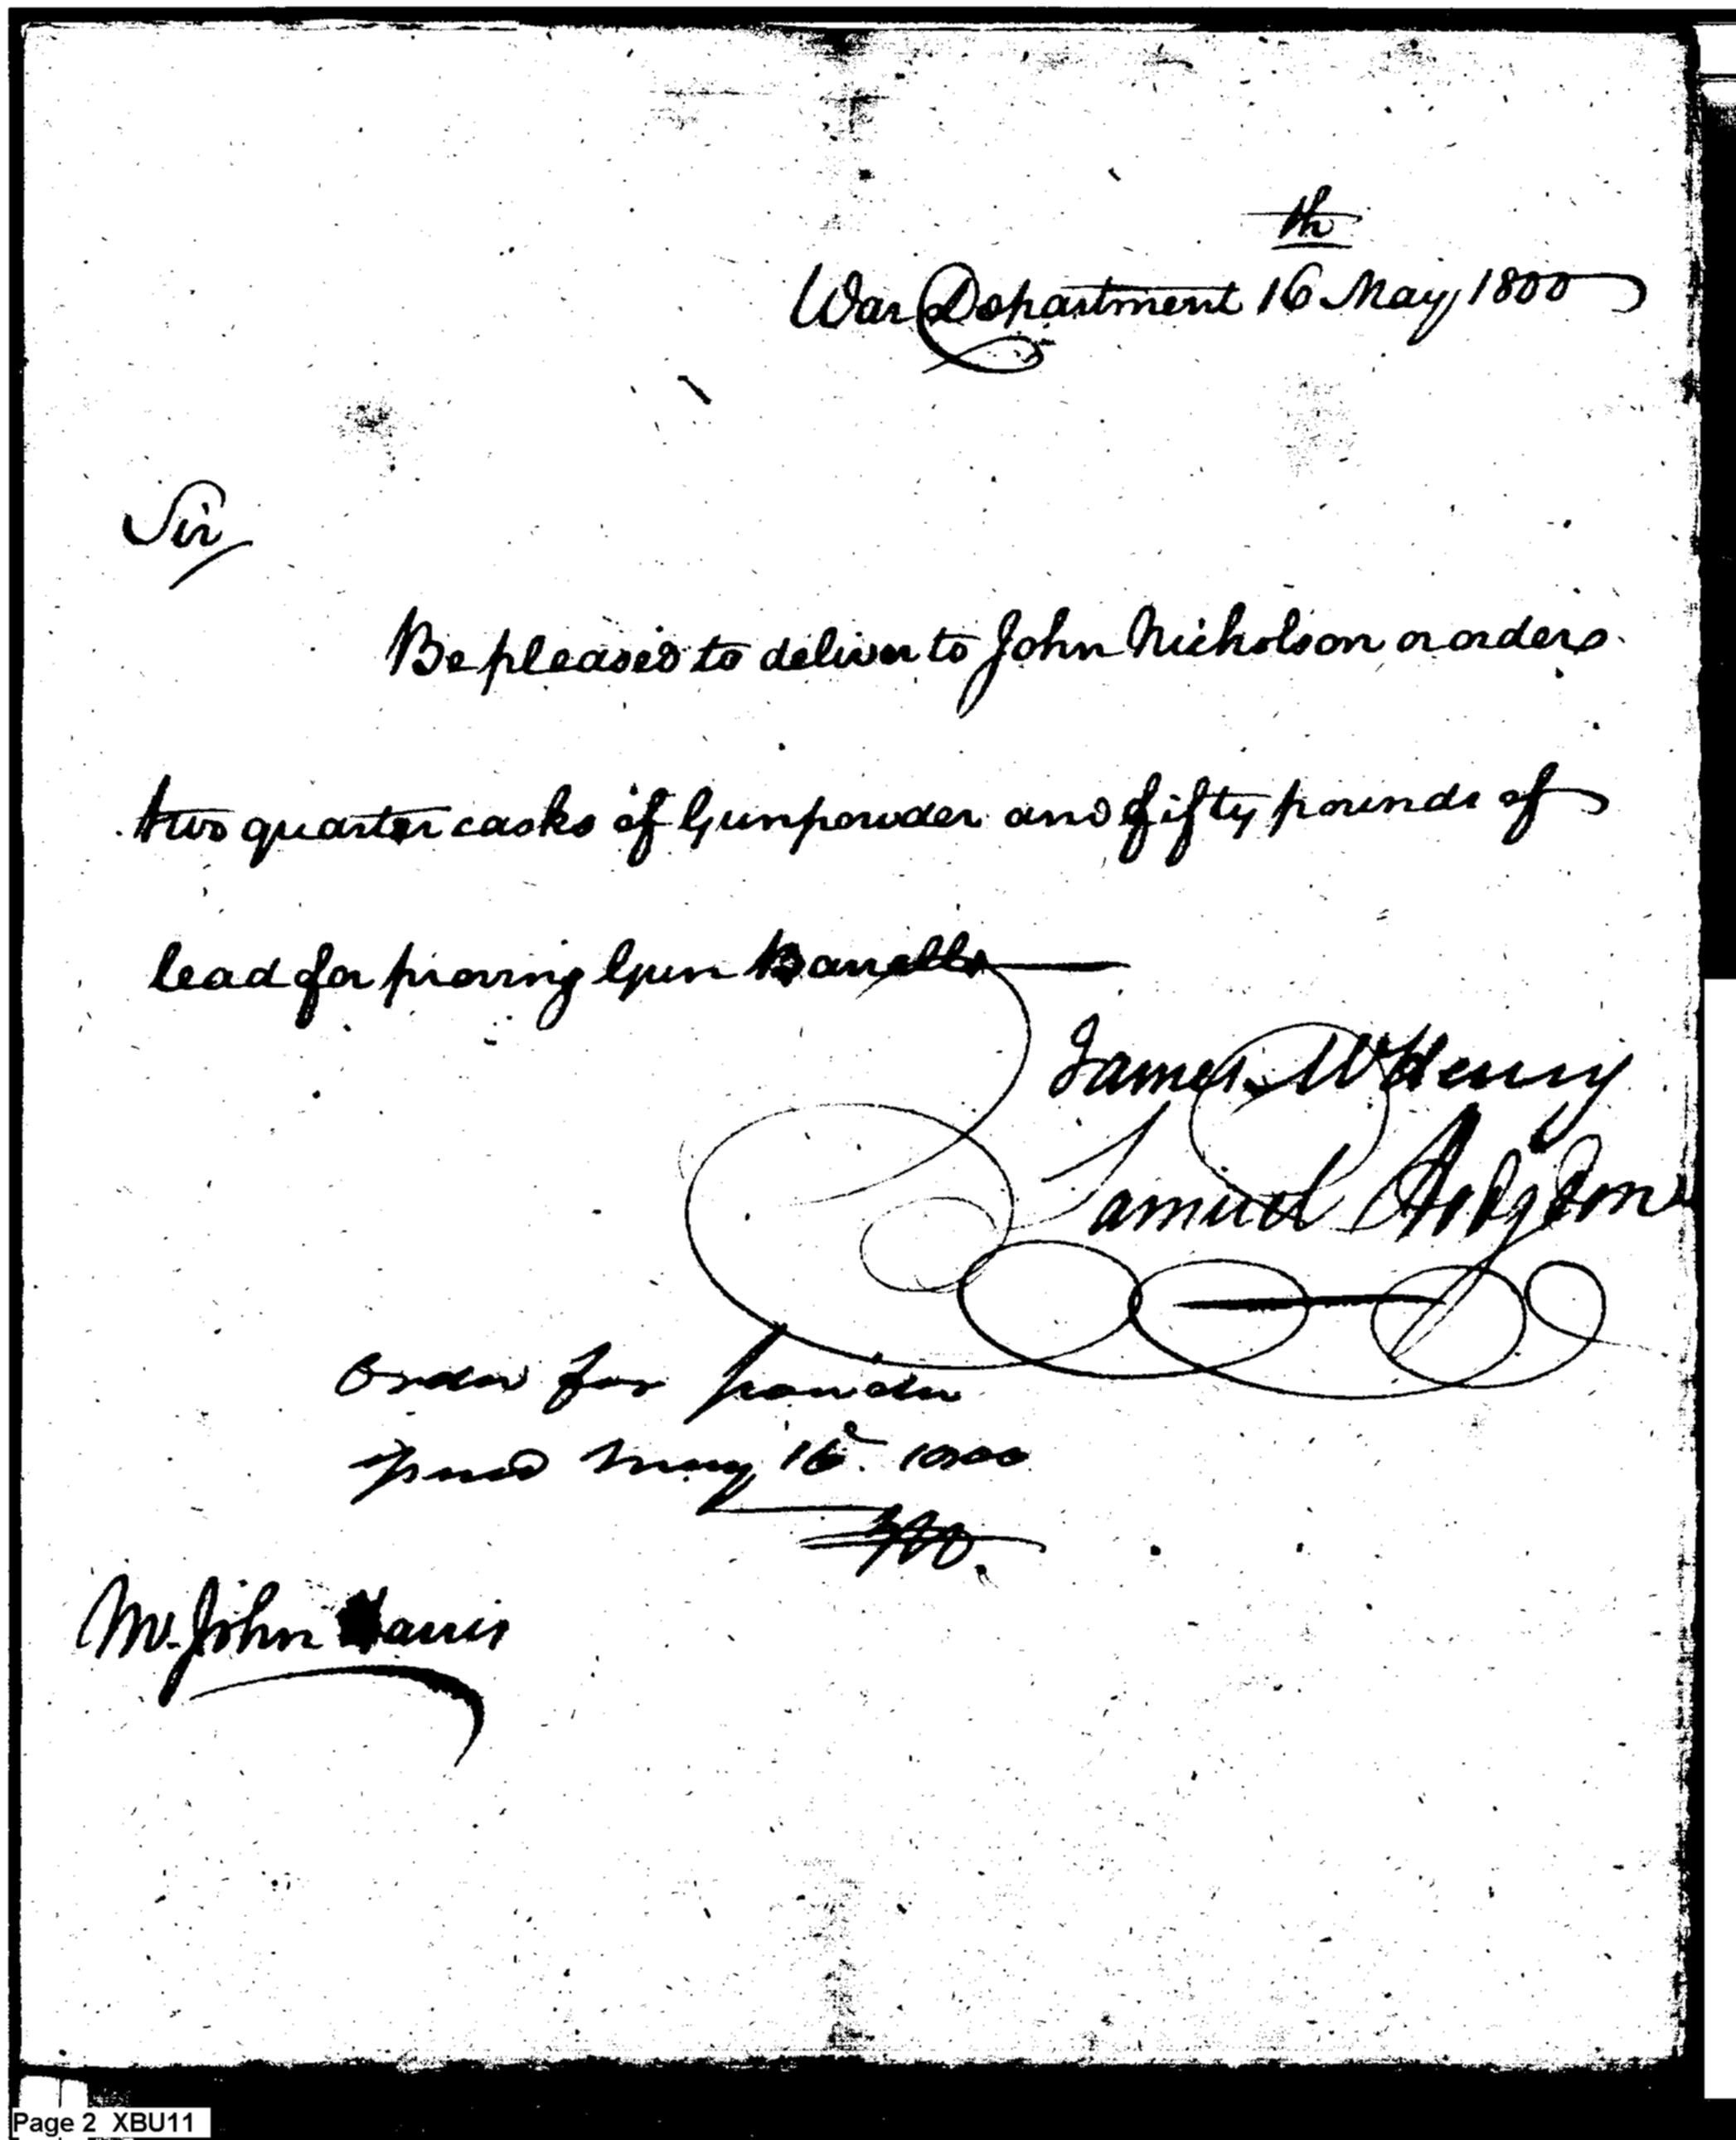 War Department 16th May 1800
Sir
Be pleased to deliver to John Nicholson or order
two quarter casks of Gunpowder and fifty pounds of
lead for proving Gun Barrells
James McHenry
Samuel Hodgdon
Order for powder
May 16. 1800
Mr. John Harris
Page 2 XBU11